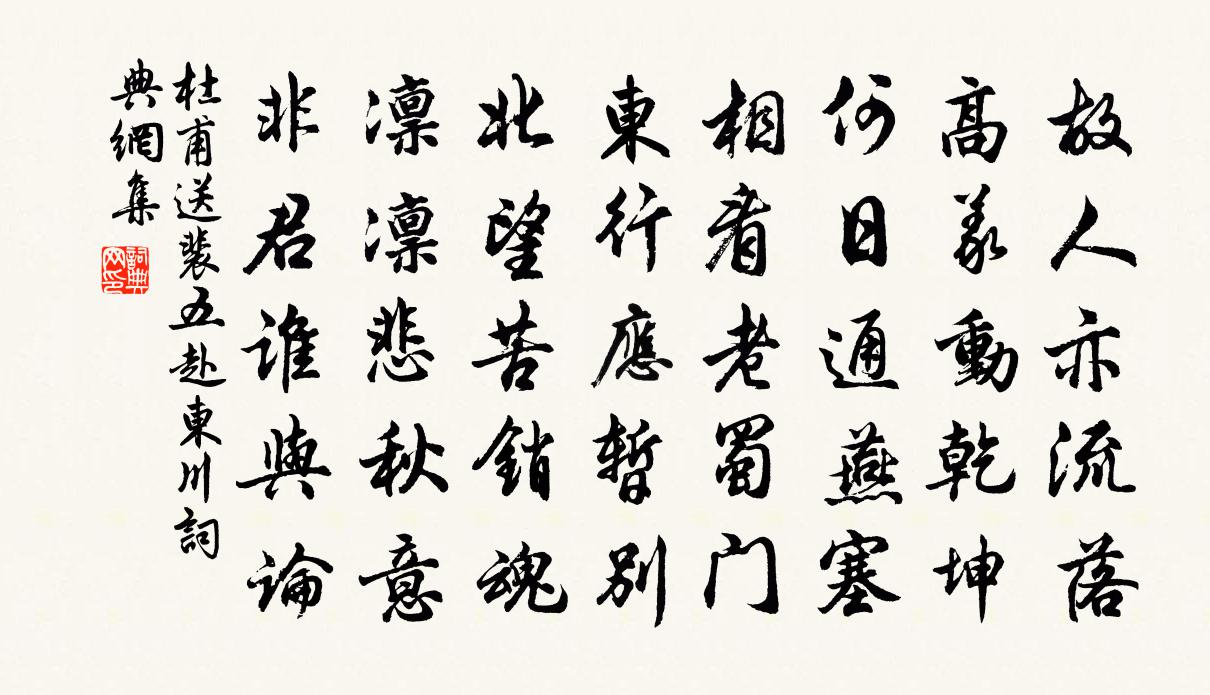 故人亦流落
高義動乾坤
何日通燕塞
相看老蜀門
東行應暫別
北望苦銷魂
凛凛悲秋意
非君誰與論
杜甫送裴五赴東川詞
典網集
詞典
网印